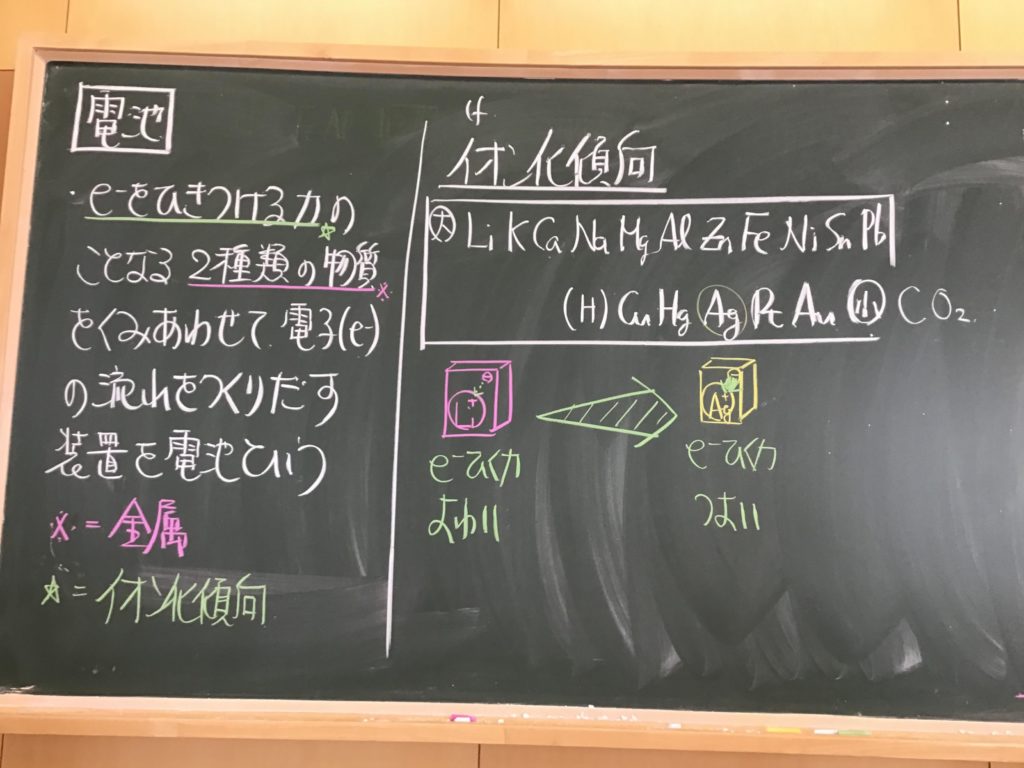 電池
・e-をひきつける力の
ことなる2種類の物質
をくみあわせて電子(e-)
の流れをつくりだす
装置を電池という
※=金属
☆=イオン化傾向
イオン化傾向
大 Li K Ca Na Mg Al Zn Fe Ni Sn Pb
(H) Cu Hg Ag Pt Au 小 CO2
Li
e-ひく力
よわい
Ag
e-ひく力
つよい